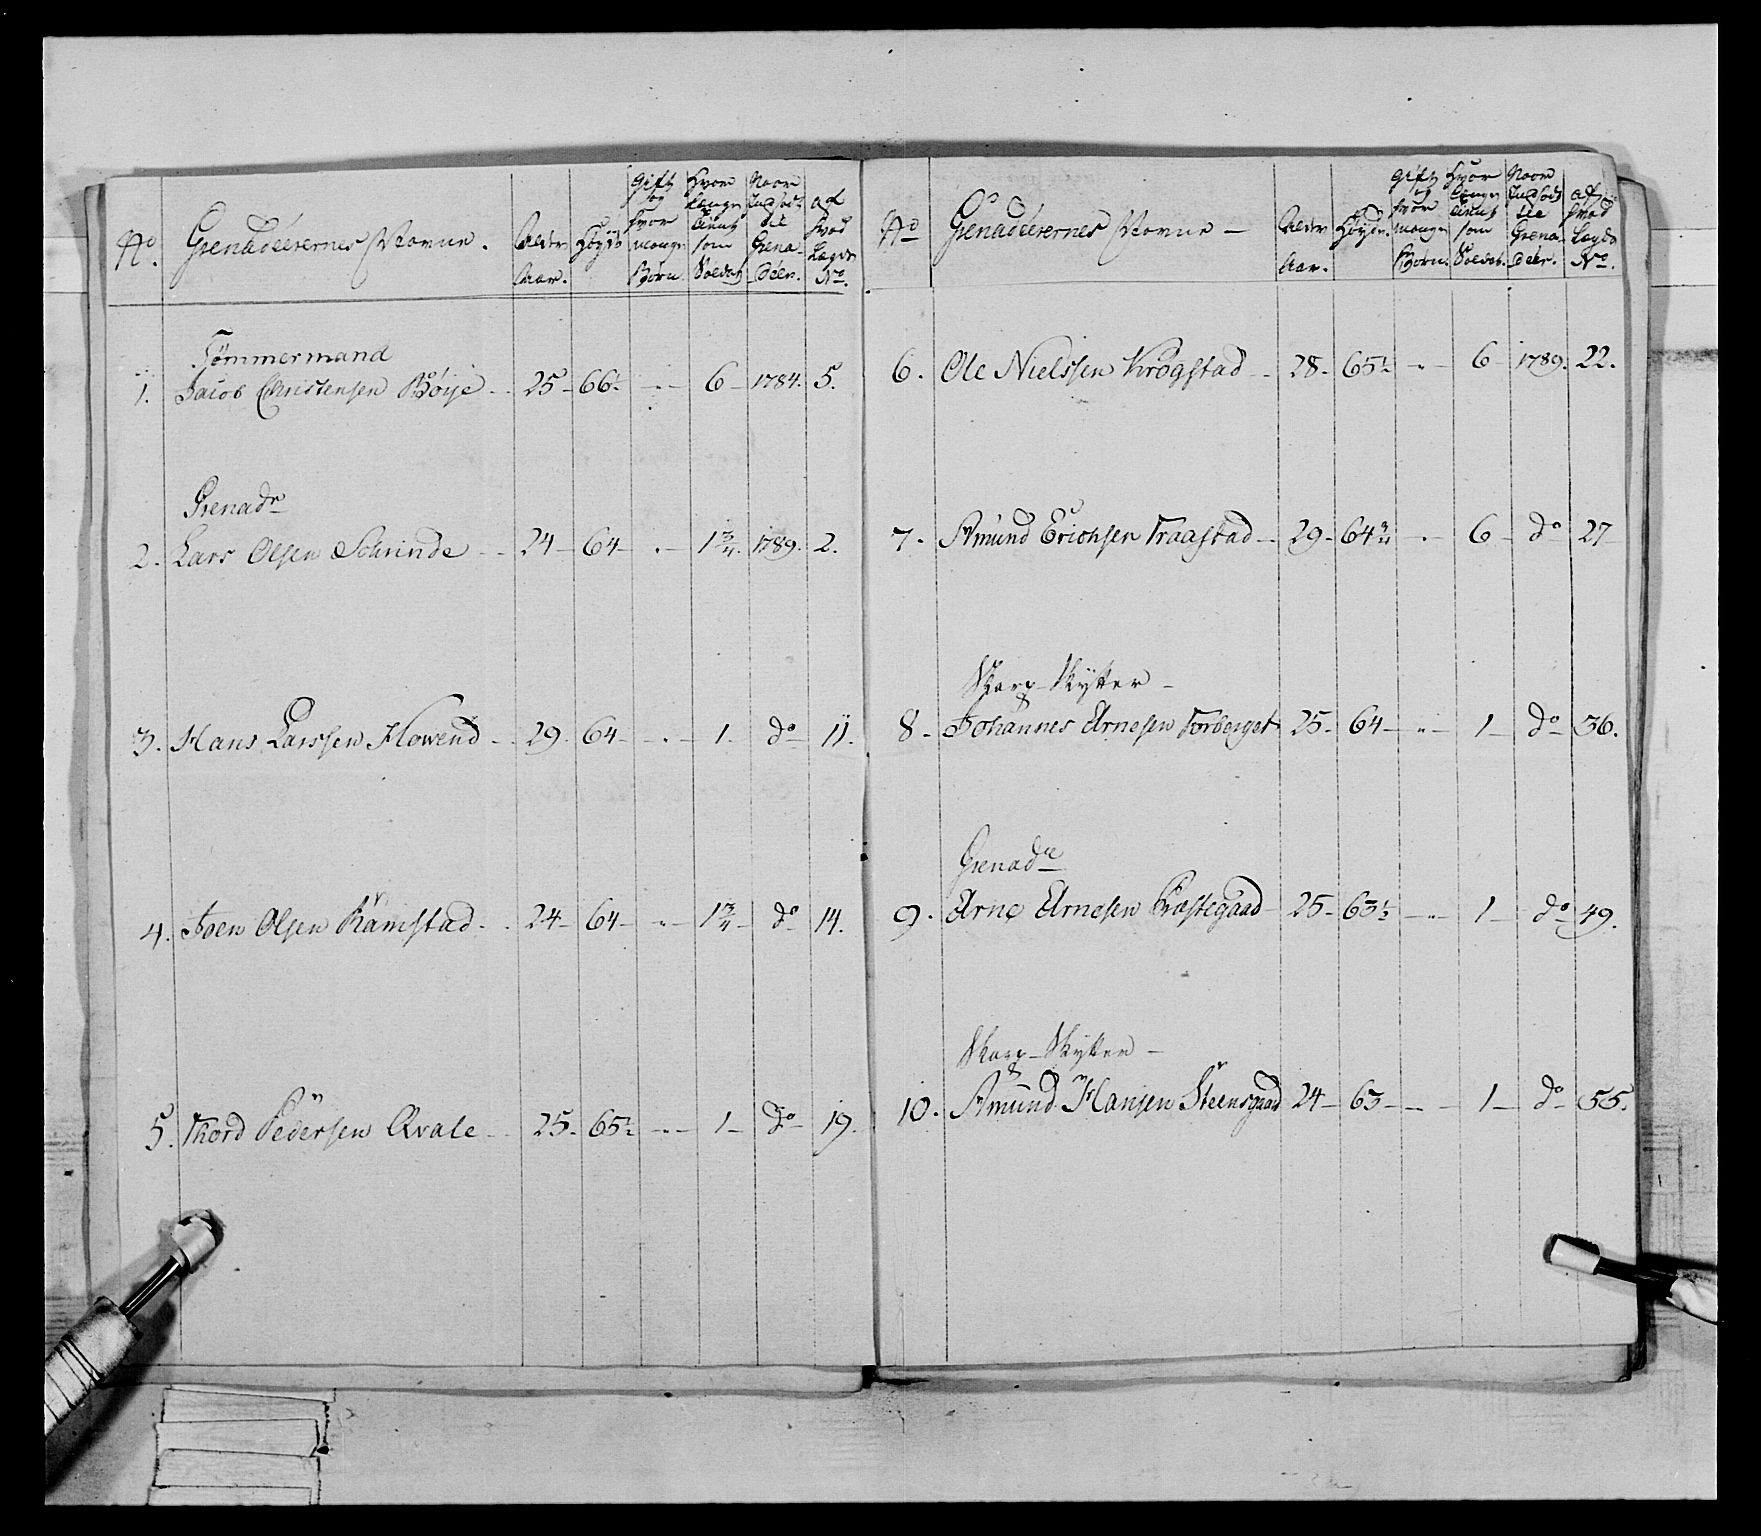 No. Grenadéerernes Navne. Alder Aar. Høyde Gift og hvor mange Børn Hvor længe tient som Soldat Naar Indsadt til Grenadéer. af hvad Lægds No.
Tømmermand
1. Jacob Christensen Bøÿe - - 25 - 66 1/2 - " - 6 - 1784. 5.
Grenadr
2. Lars Olsen Schrinde - - 24 - 64 - " - 1 3/4 - 1789. 2.
3. Hans Larssen Howend - - 29 - 64 - " 1 - do 11.
4. Joen Olsen Ramstad - - 24 - 64 - " - 1 3/4 - do 14.
5. Thord Pedersen Qvale - - 25 - 65 1/2 - " - 1 - do - 19.
No Grenadéerernes Navne - Alder Aar. Høyde. Gift og hvor mange Børn. Hvor længe tient som Soldat. Naar Indsadt til Grenadeer. af hvad Lægds No.
6. Ole Nielssen Krogstad - - 28 - 65 1/2 - " - 6 - 1789. 22.
7. Amund Erichsen Traastad - - 29 - 64 3/4 - " - 6 - do 27
Skarp-Skÿtter -
8. Johannes Arnesen Forberget 25 - 64 - " - 1 - do - 36.
Grenadr
9. Arne Arnesen Præstegaad - 25 - 63 1/2 - " - 1 - do 49.
Skarp-Skytter -
10. Amund Hansen Steensgaad 24 - 63 - " - 1 - do - 55.